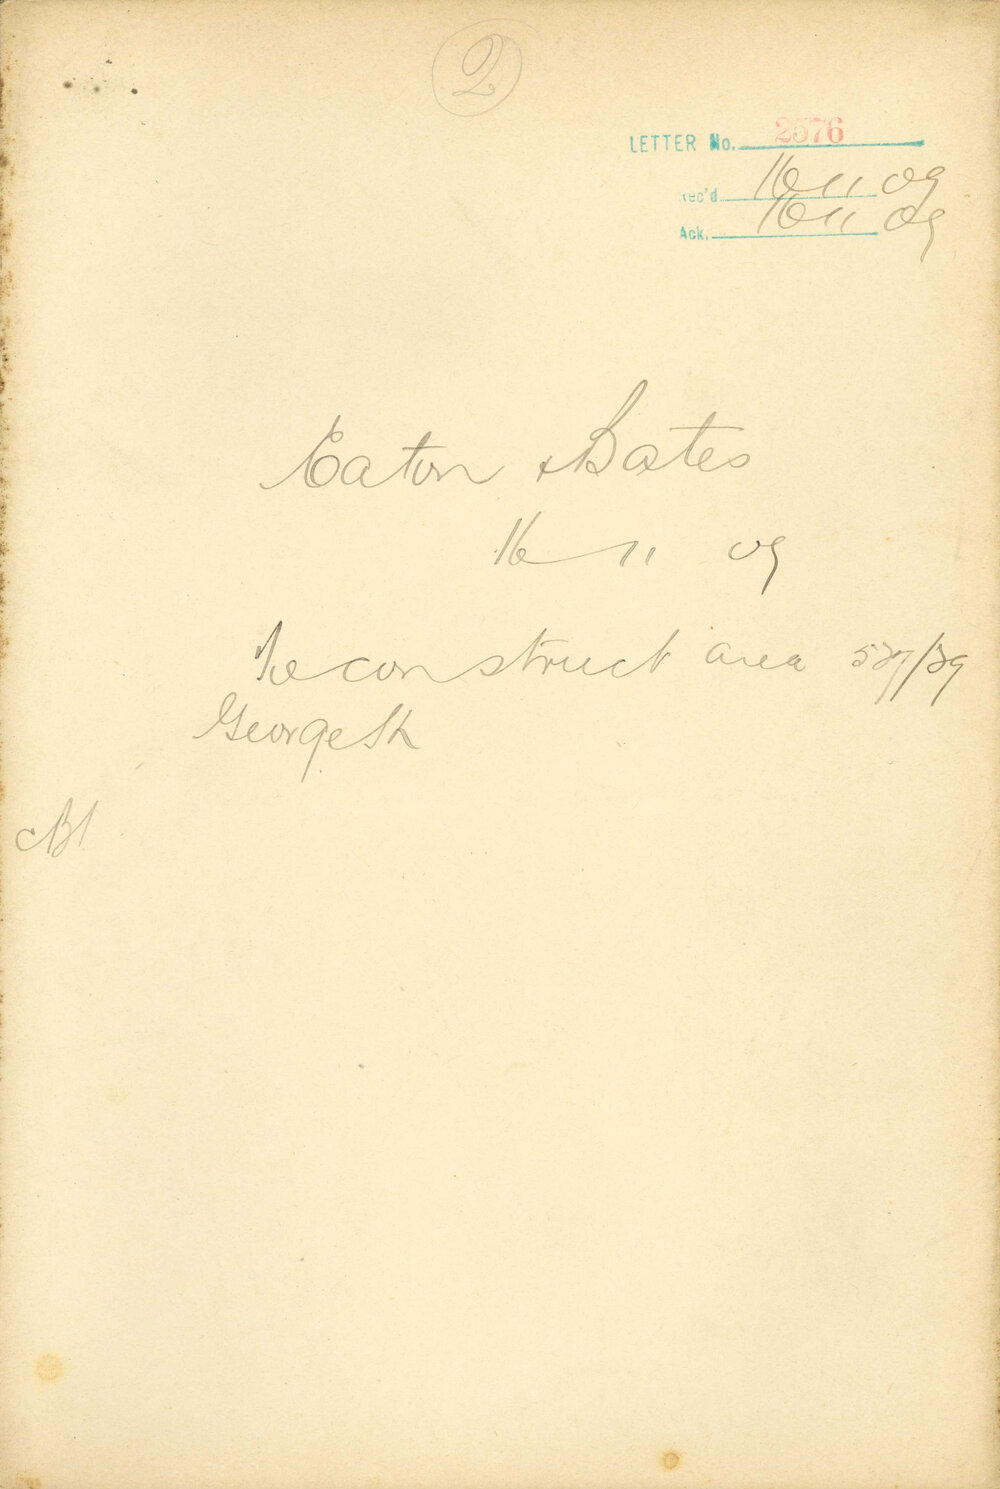 2
LETTER No. 2576
Rec'd 16 11 09
Ack. 16 11 09
Eaton & Bates
16 11 09
Re construct area 527/29
George St